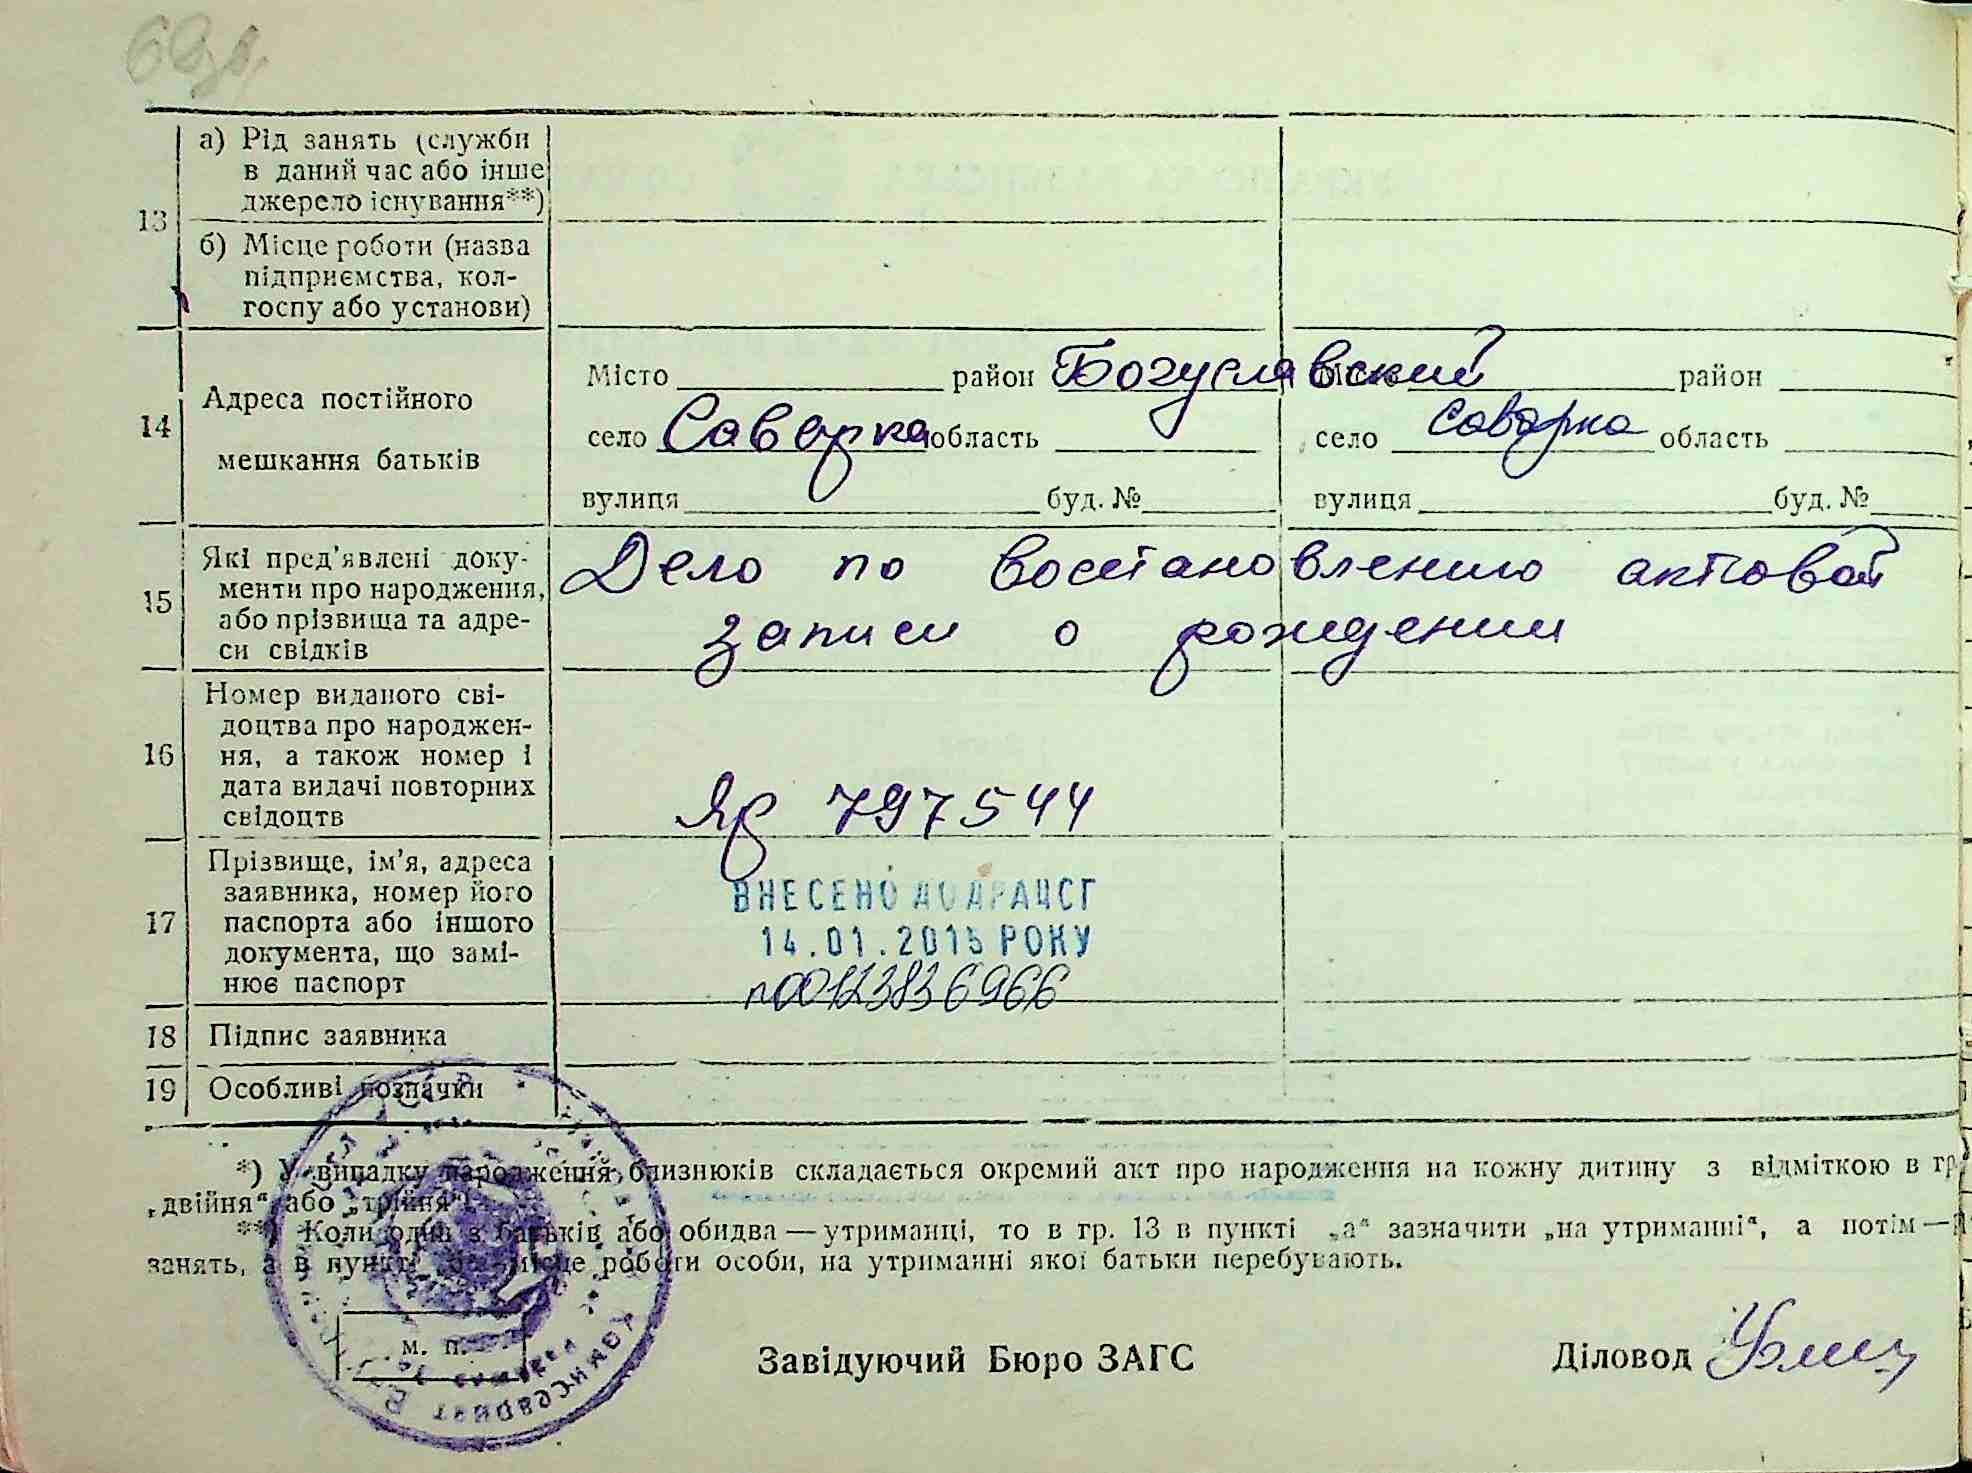 13
а) Рід занять (служби
в даний час або інше
джерело існування**)
б) Місце роботи (назва
підприємства, кол-
госпу або установи)
14
Адреса постійного
мешкання батьків
Місто район Богуславский район
село Саварка область село Саварка область
вулиця буд. № вулиця буд. №
15
Які пред'явлені доку-
менти про народження,
або прізвища та адре-
си свідків
Дело по восстановлению актовой
записи о рождении
16
Номер виданого сві-
доцтва про народжен-
ня, а також номер і
дата видачі повторних
свідоцтв
Яр 797544
17
Прізвище, ім'я, адреса
заявника, номер його
паспорта або іншого
документа, що замі-
нює паспорт
ВНЕСЕНО ДО ДРАЦСГ
14.01.2015 РОКУ
18 Підпис заявника
19 Особливі позначки
*) У випадку народження близнюків складається окремий акт про народження на кожну дитину з відміткою в гр.
„двійня“ або „трійня“.
**) Коли один з батьків або обидва — утриманці, то в гр. 13 в пункті „а“ зазначити „на утриманні“, а потім —
занять, а в пункті „б“ — місце роботи особи, на утриманні якої батьки перебувають.
м. п.
Завідуючий Бюро ЗАГС Діловод